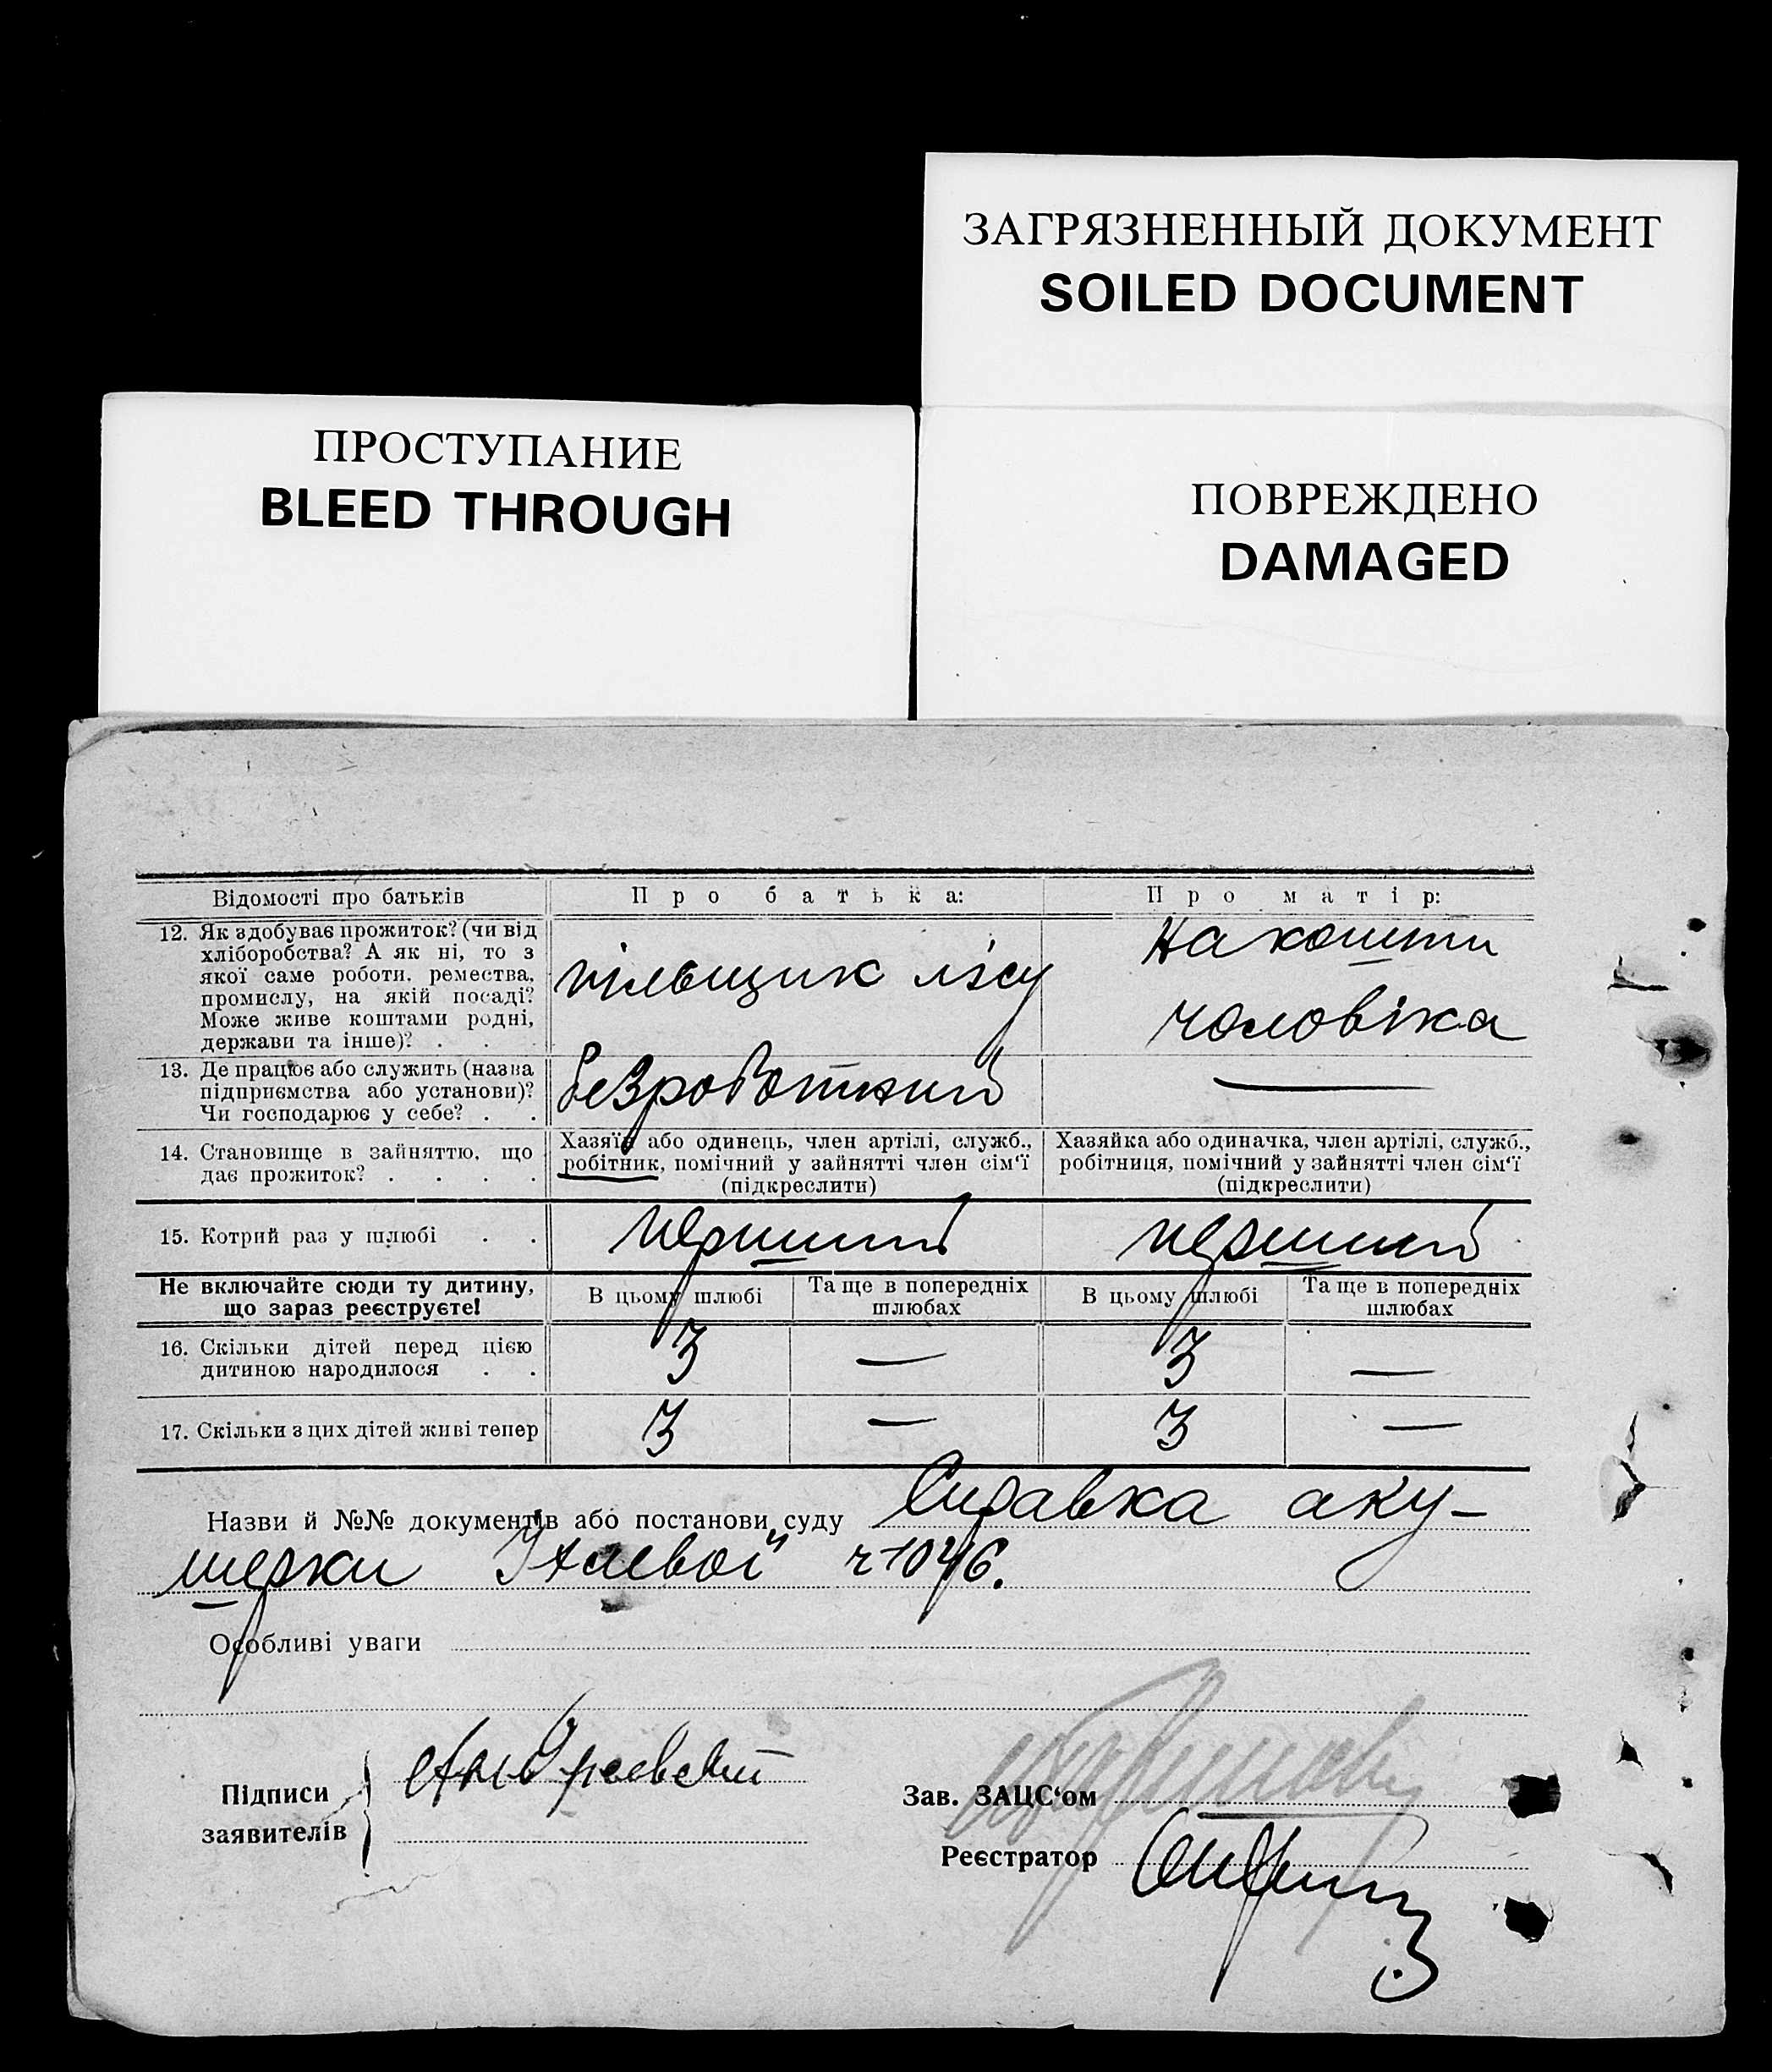 ЗАГРЯЗНЕННЫЙ ДОКУМЕНТ
SOILED DOCUMENT
ПРОСТУПАНИЕ
BLEED THROUGH
ПОВРЕЖДЕНО
DAMAGED
Відомості про батьків
Про батька:
Про матір:
12. Як здобуває прожиток? (чи від
хліборобства? А як ні, то з
якої саме роботи, ремества,
промислу, на якій посаді?
Може живе коштами родні,
держави та інше)? . . .
пільщик лісу
На кошти
чоловіка
13. Де працює або служить (назва
підприємства або установи)?
Чи господарює у себе? . .
безроботний
—
14. Становище в зайняттю, що
дає прожиток? . . . .
Хазяїн або одинець, член артілі, служб.,
робітник, помічний у зайнятті член сім‘ї
(підкреслити)
Хазяйка або одиначка, член артілі, служб.,
робітниця, помічний у зайнятті член сім‘ї
(підкреслити)
15. Котрий раз у шлюбі . .
перший
перший
Не включайте сюди ту дитину,
що зараз реєструєте!
В цьому шлюбі
Та ще в попередніх
шлюбах
В цьому шлюбі
Та ще в попередніх
шлюбах
16. Скільки дітей перед цією
дитиною народилося . .
3 — 3 —
17. Скільки з цих дітей живі тепер
3 — 3 —
Назви й №№ документів або постанови суду Справка аку-
шерки
Особливі уваги
Підписи
заявителів
Зав. ЗАЦС‘ом
Реєстратор